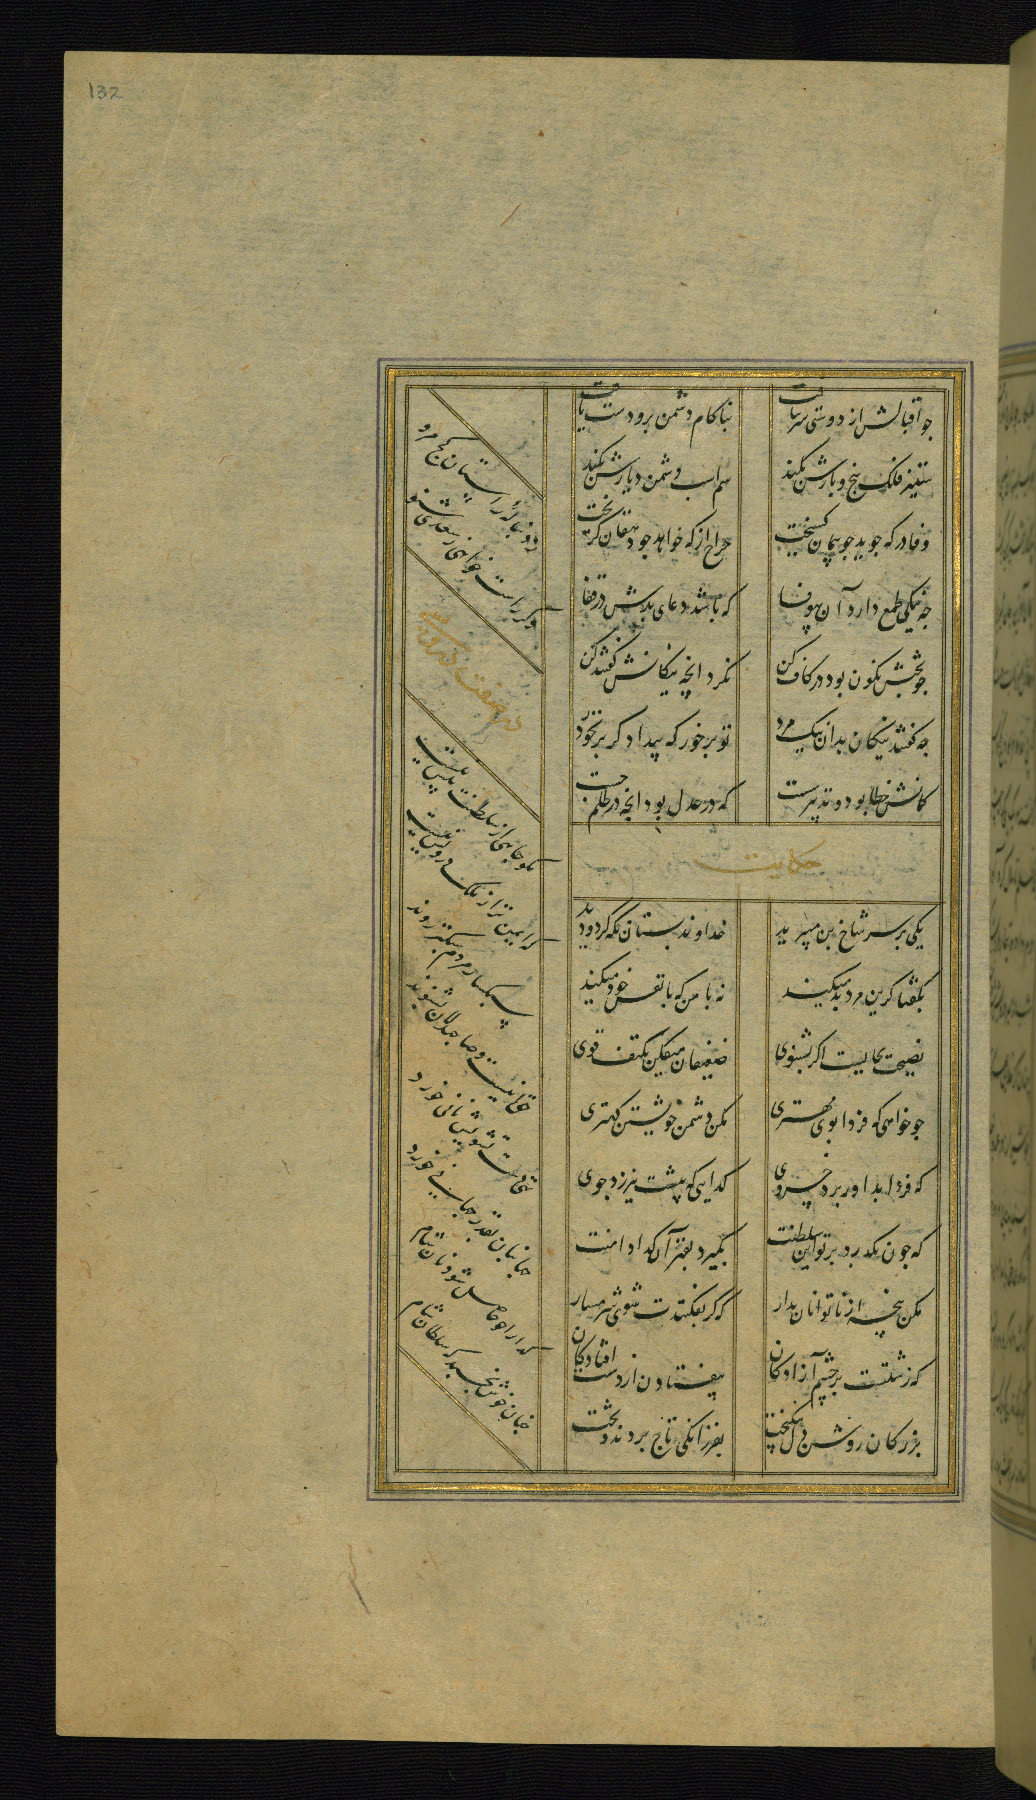 132
چو اقبالش از دوستی سر بتافت
بناکام دشمن برو دست یافت
ستیز فلک بیخ و بارش بکند
سم اسب دشمن دیارش بکند
وفا در که جوید چو پیمان کسیخت
خراج از که خواهد چو دهقان گریخت
چه نیکی طمع دارد آن بیوفا
که باشد دعای بدش در قفا
چو بختش نکون بود در کاف کن
نکرد انچه نیکانش کفتند کن
چه کفتند نیکان بدان نیک مرد
تو بر خور که بیداد کر بر نخورد
کمانش خطا بود و تدبیر سست
که در عدل بود انچه در ظلم جست
حکایت
یکی بر سر شاخ بن میبرید
خداوند بستان نکه کرد و دید
بکفتا کر این مرد بد میکند
نه با من که با نفس خود میکند
نصیحت بجاییست اکر بشنوی
ضعیفان میفکن بکتف قوی
چو خواهی که فردا بوی مهتری
مکن دشمن خویشتن کهتری
که فردا بداور برد خسروی
کدایی که پیشت نیرزد جوی
که چون بکذرد بر تو این سلطنت
بکیرد بقهر آن کدا دامنت
مکن پنجه از ناتوانان بدار
که کر بفکنندت شوی شرمسار
که زشتست بر چشم آزادکان
بیفتادن از دست افتادکان
بزرکان روشن دل نیکبخت
بفرزانکی تاج بردند و تخت
بدنباله راستان کج مرو
وکر راست خواهی ز سعدی شنو
مکو جاهی از سلطنت بیش نیست
که ایمن تر از ملک درویش نیست
سبکبار مردم سبکتر روند
حق اینست و صاحبدلان بشنوند
تهی دست تشویش نانی خورد
جهانبان بقدر جهانی خورد
کدا را چو حاصل شود نان شام
چنان خوش بخسبد که سلطان شام